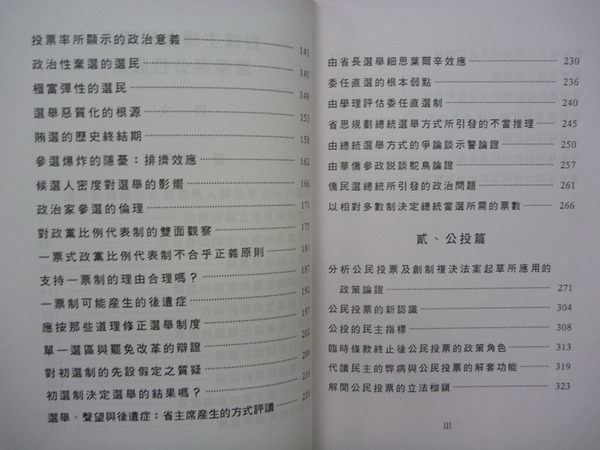 投票率所顯示的政治意義 141
政治性棄選的選民
極富彈性的選民
選舉惡質化的根源 153
賄選的歷史終結期 159
參選爆炸的隱憂：排擠效應 162
候選人密度對選舉的影嚮 166
政治家參選的倫理 173
對政黨比例代表制的雙面觀察
一票式政黨比例代表制不合乎正義原則 181
支持一票制的理由合理嗎？ 187
一票制可能產生的後遺症
應按那些道理修正選舉制度
單一選區與罷免改革的辯證
對初選制的先設假定之質疑
初選制決定選舉的結果嗎？
選舉、聲望與後遺症：省主席產生的方式評議
由省長選舉細思葉爾辛效應 230
委任直選的根本弱點 236
由學理評估委任直選制 240
省思規劃總統選舉方式所引發的不當推理 245
由總統選舉方式的爭論談示警論證 250
由華僑參政説談鴕鳥論證 257
僑民選總統所引發的政治問題 261
以相對多數制決定總統當選所需的票數 266
貳、公投篇
分析公民投票及創制複決法案起草所應用的
政策論證 271
公民投票的新認識 304
公投的民主指標 308
臨時條款終止後公民投票的政策角色 313
代議民主的弊病與公民投票的解套功能 319
解開公民投票的立法枷鎖 323
III